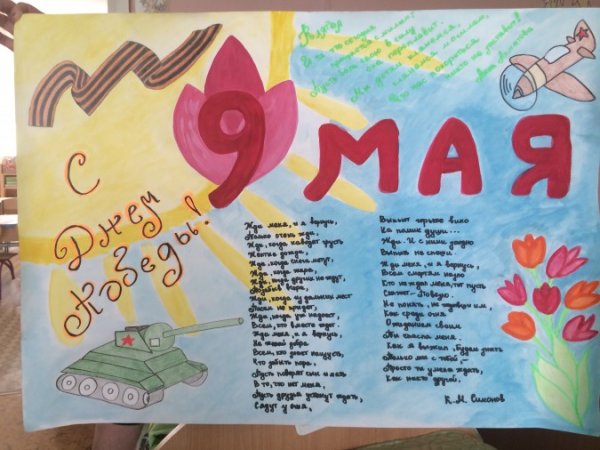 9 МАЯ
С
Днем
Победы!
Жди меня, и я вернусь,
Только очень жди,
Жди, когда наводят грусть
Желтые дожди,
Жди, когда снега метут,
Жди, когда жара,
Жди, когда других не ждут,
Позабыв вчера.
Жди, когда из дальних мест
Писем не придет,
Жди, когда уж надоест
Всем, кто вместе ждет.
Жди меня, и я вернусь,
Не желай добра
Всем, кто знает наизусть,
Что забыть пора.
Пусть поверят сын и мать
В то, что нет меня,
Пусть друзья устанут ждать,
Сядут у огня,
Выпьют горькое вино
На помин души...
Жди. И с ними заодно
Выпить не спеши.
Жди меня, и я вернусь,
Всем смертям назло.
Кто не ждал меня, тот пусть
Скажет: Повезло.
Не понять, не ждавшим им,
Как среди огня
Ожиданием своим
Ты спасла меня.
Как я выжил, будем знать
Только мы с тобой -
Просто ты умела ждать,
Как никто другой.
К.М. Симонов